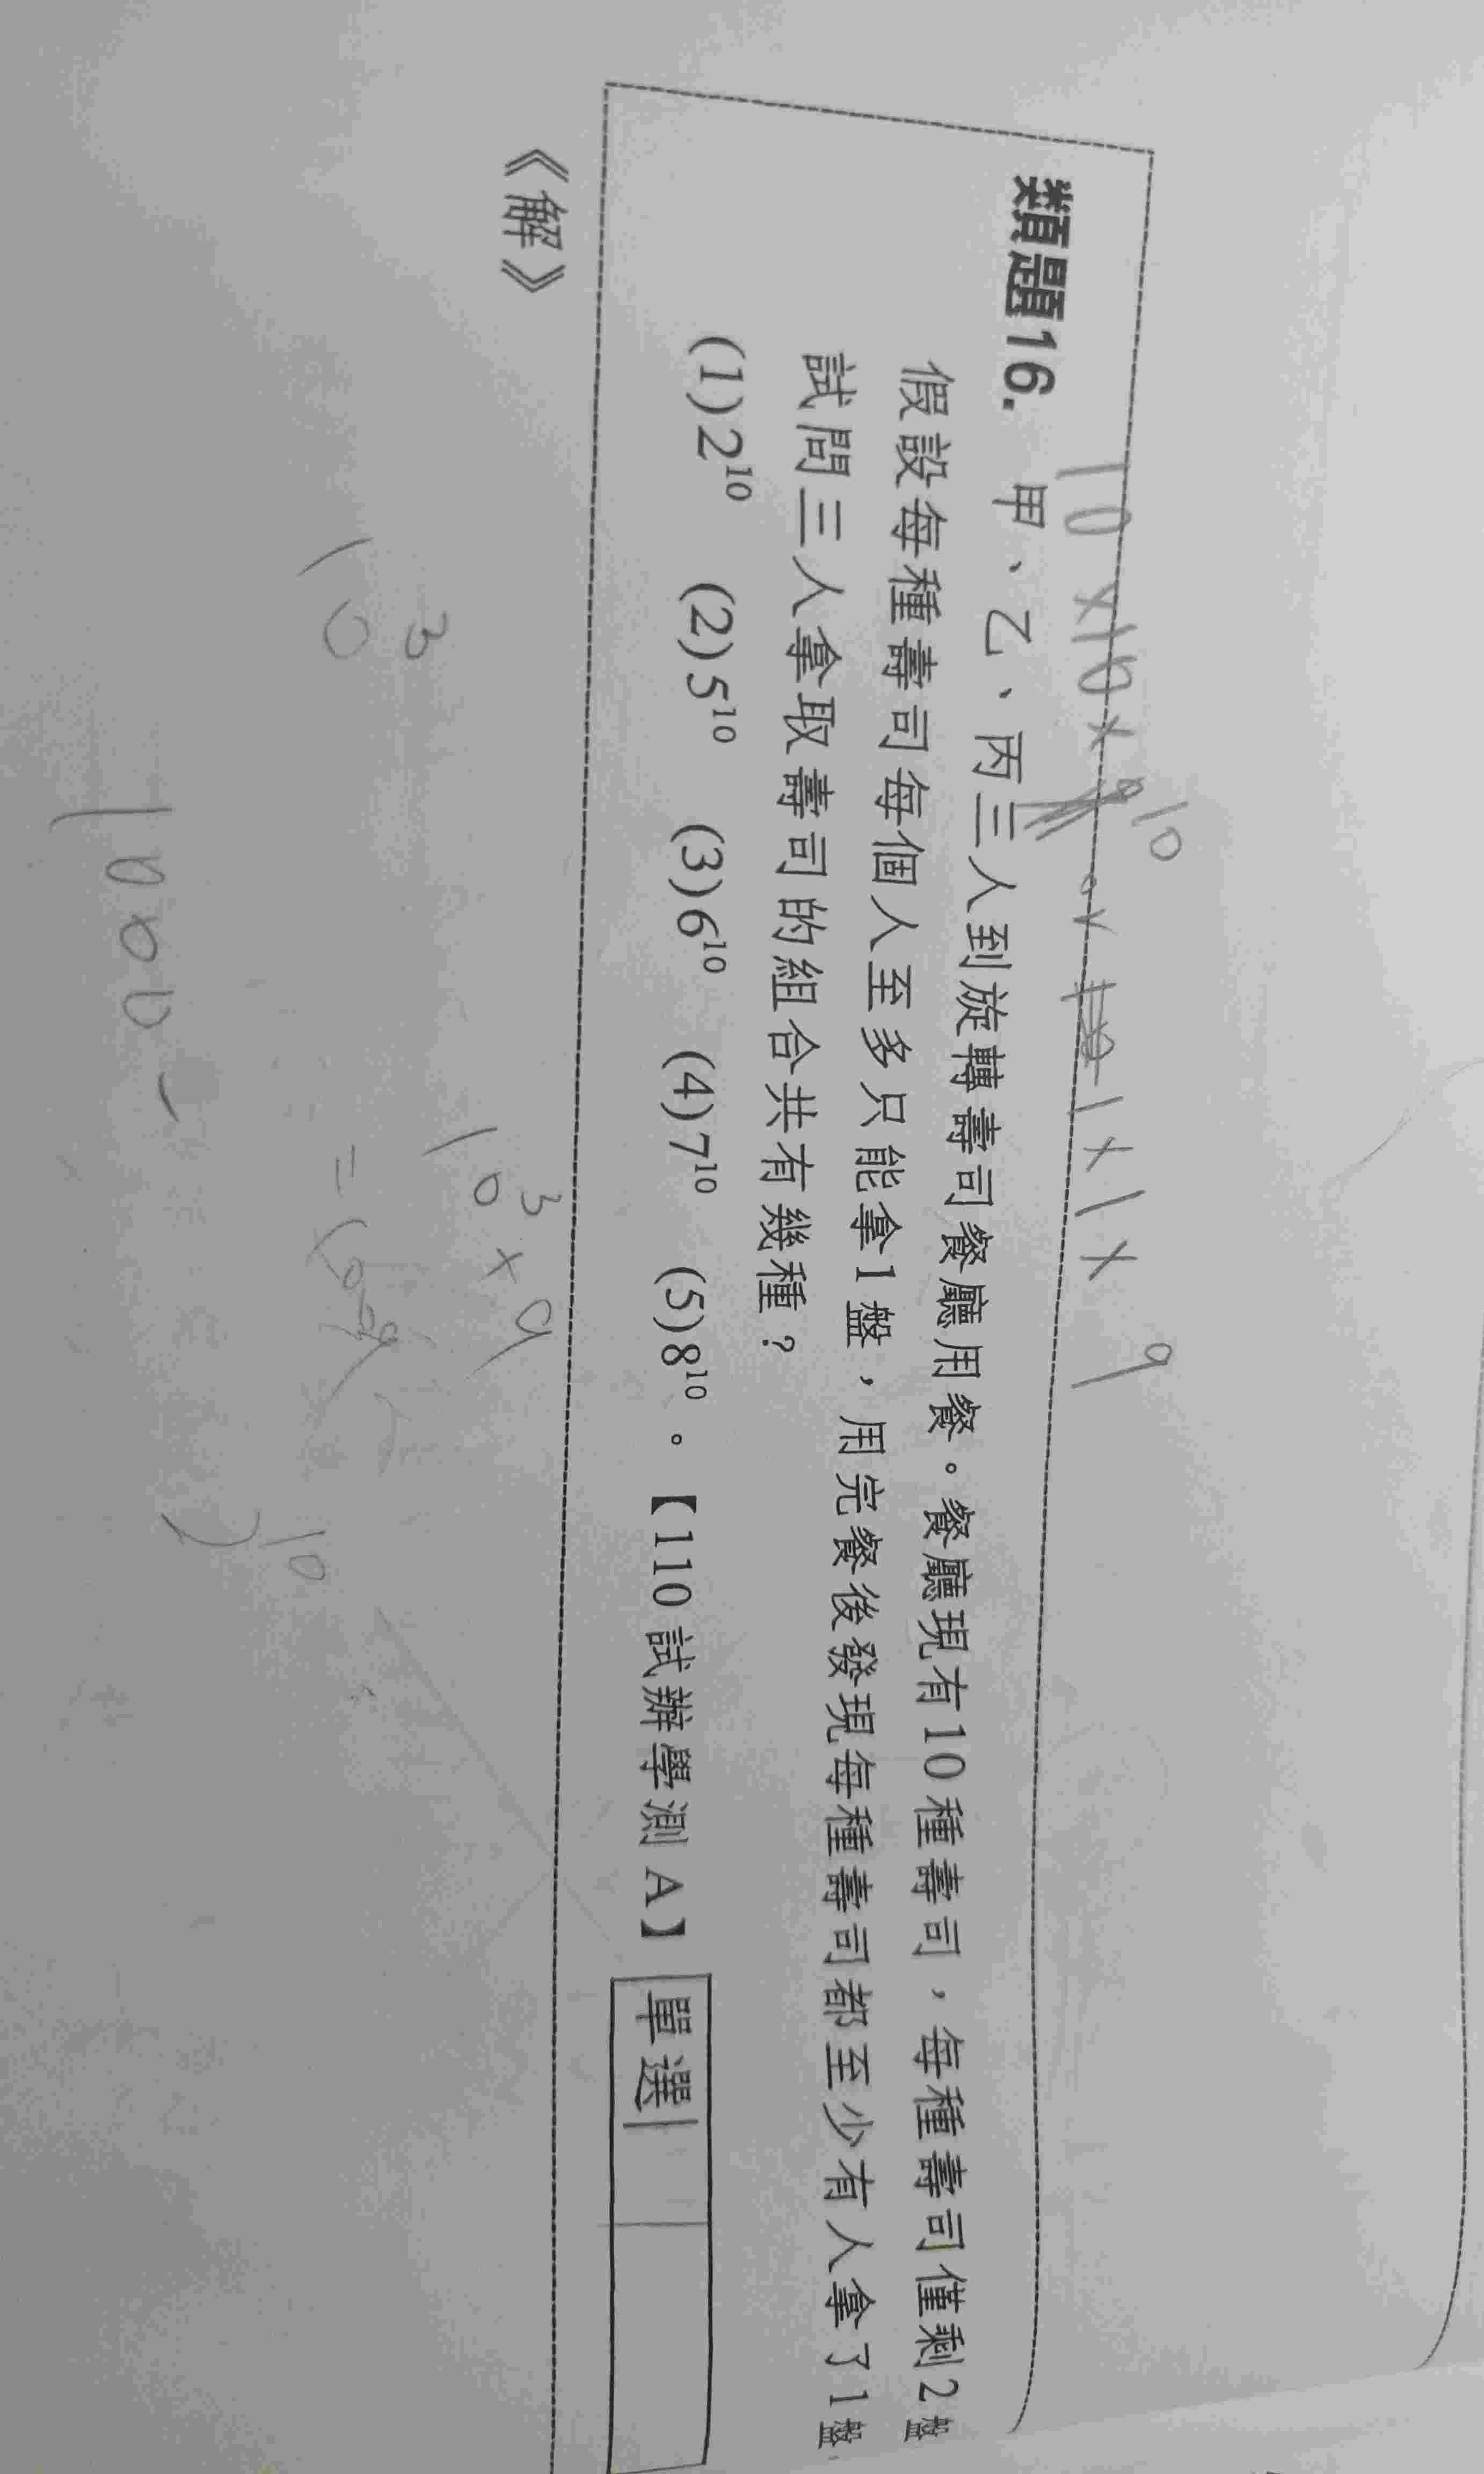 10×10×
10
1×1×
9
類題16. 甲、乙、丙三人到旋轉壽司餐廳用餐。餐廳現有10種壽司，每種壽司僅剩2盤
假設每種壽司每個人至多只能拿1盤，用完餐後發現每種壽司都至少有人拿了1盤
試問三人拿取壽司的組合共有幾種？
(1)2¹⁰ (2)5¹⁰ (3)6¹⁰ (4)7¹⁰ (5)8¹⁰。【110試辦學測A】 單選
《解》
10³
10³×9
1000-
10